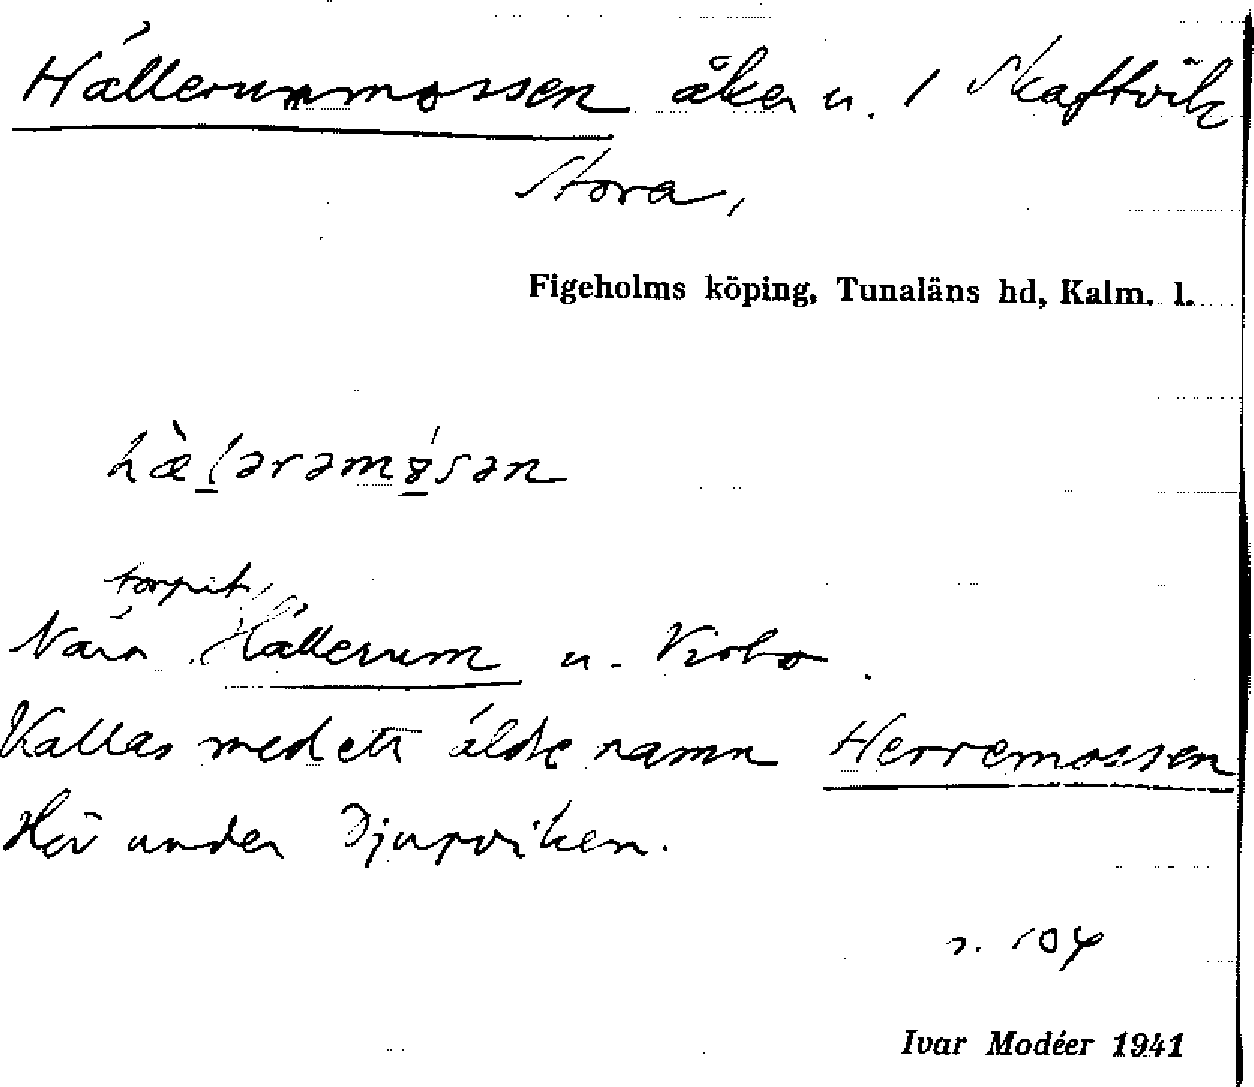 Hällerummossen åker u. 1 Skaftvik
Stora,
Figeholms köping, Tunaläns hd, Kalm. l.
torpet
Nära Hällerum u. Krobo.
Kallas med ett äldre namn Herremossen
Hör under Djupviken.
s. 104
Ivar Modéer 1941